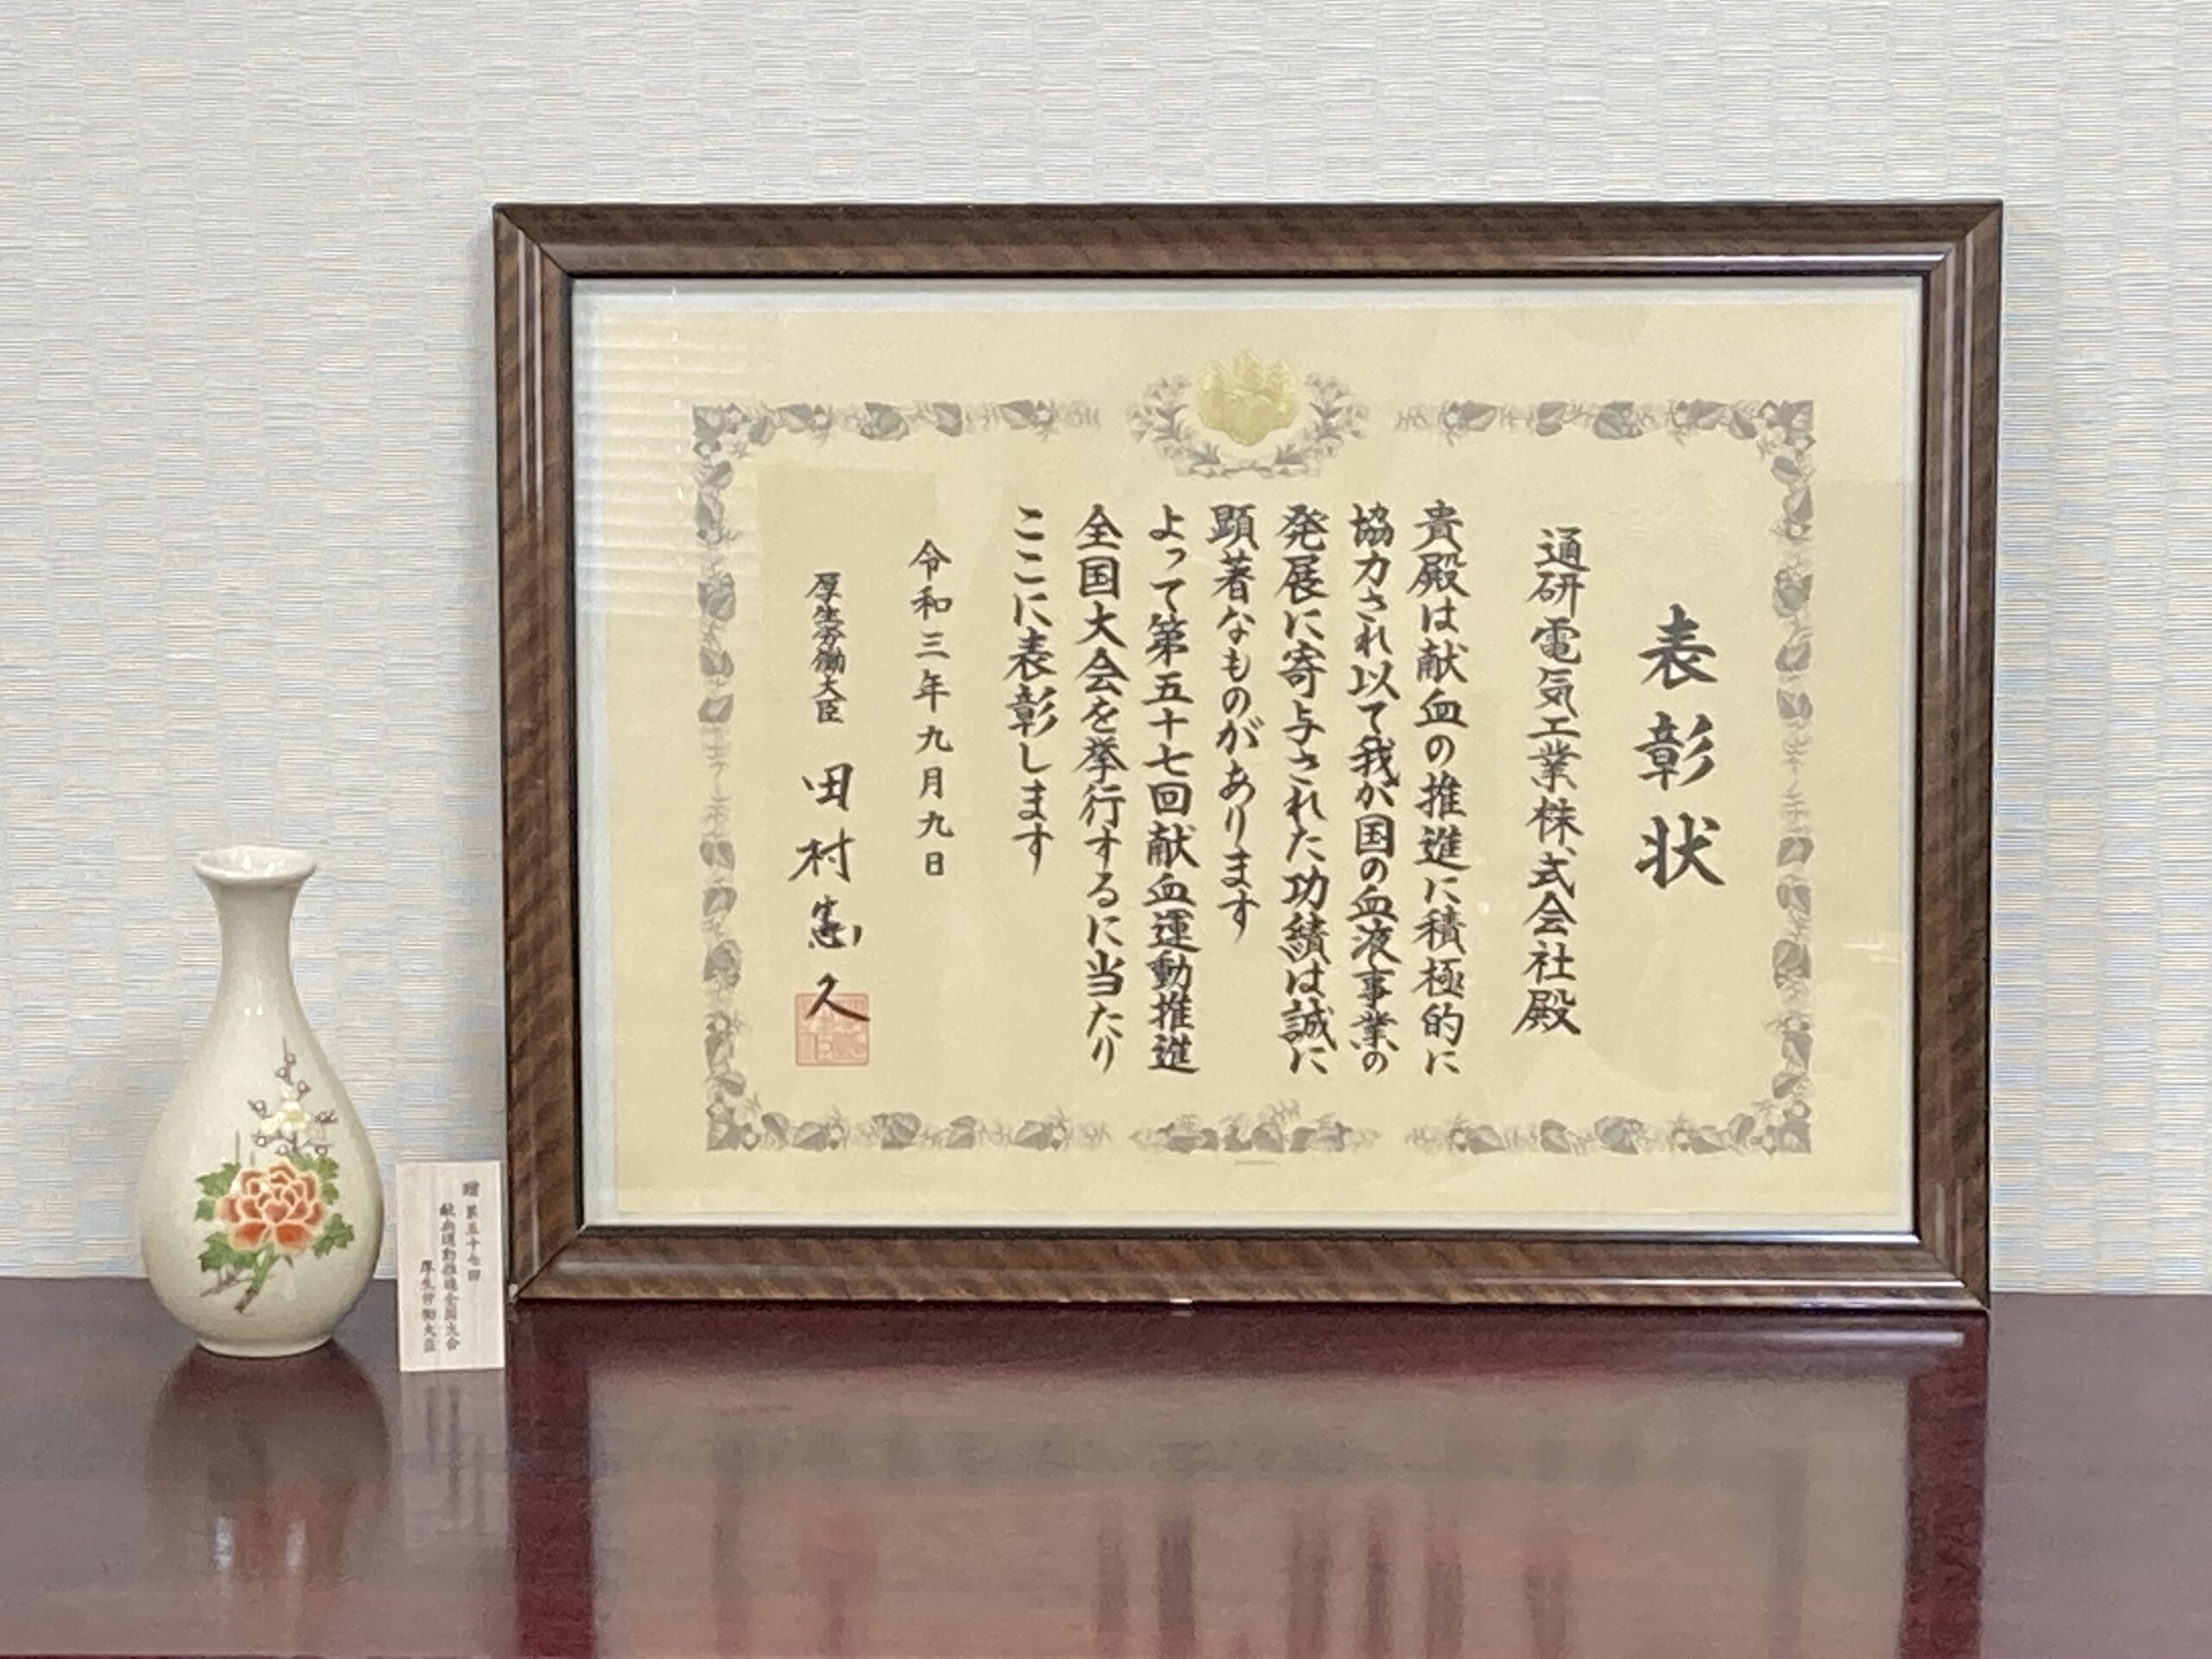 表彰状
通研電気工業株式会社殿
貴殿は献血の推進に積極的に
協力され以て我が国の血液事業の
発展に寄与された功績は誠に
顕著なものがあります
よって第五十七回献血運動推進
全国大会を挙行するに当たり
ここに表彰します
令和三年九月九日
厚生労働大臣 田村憲久
贈 第五十七回
献血運動推進全国大会
厚生労働大臣